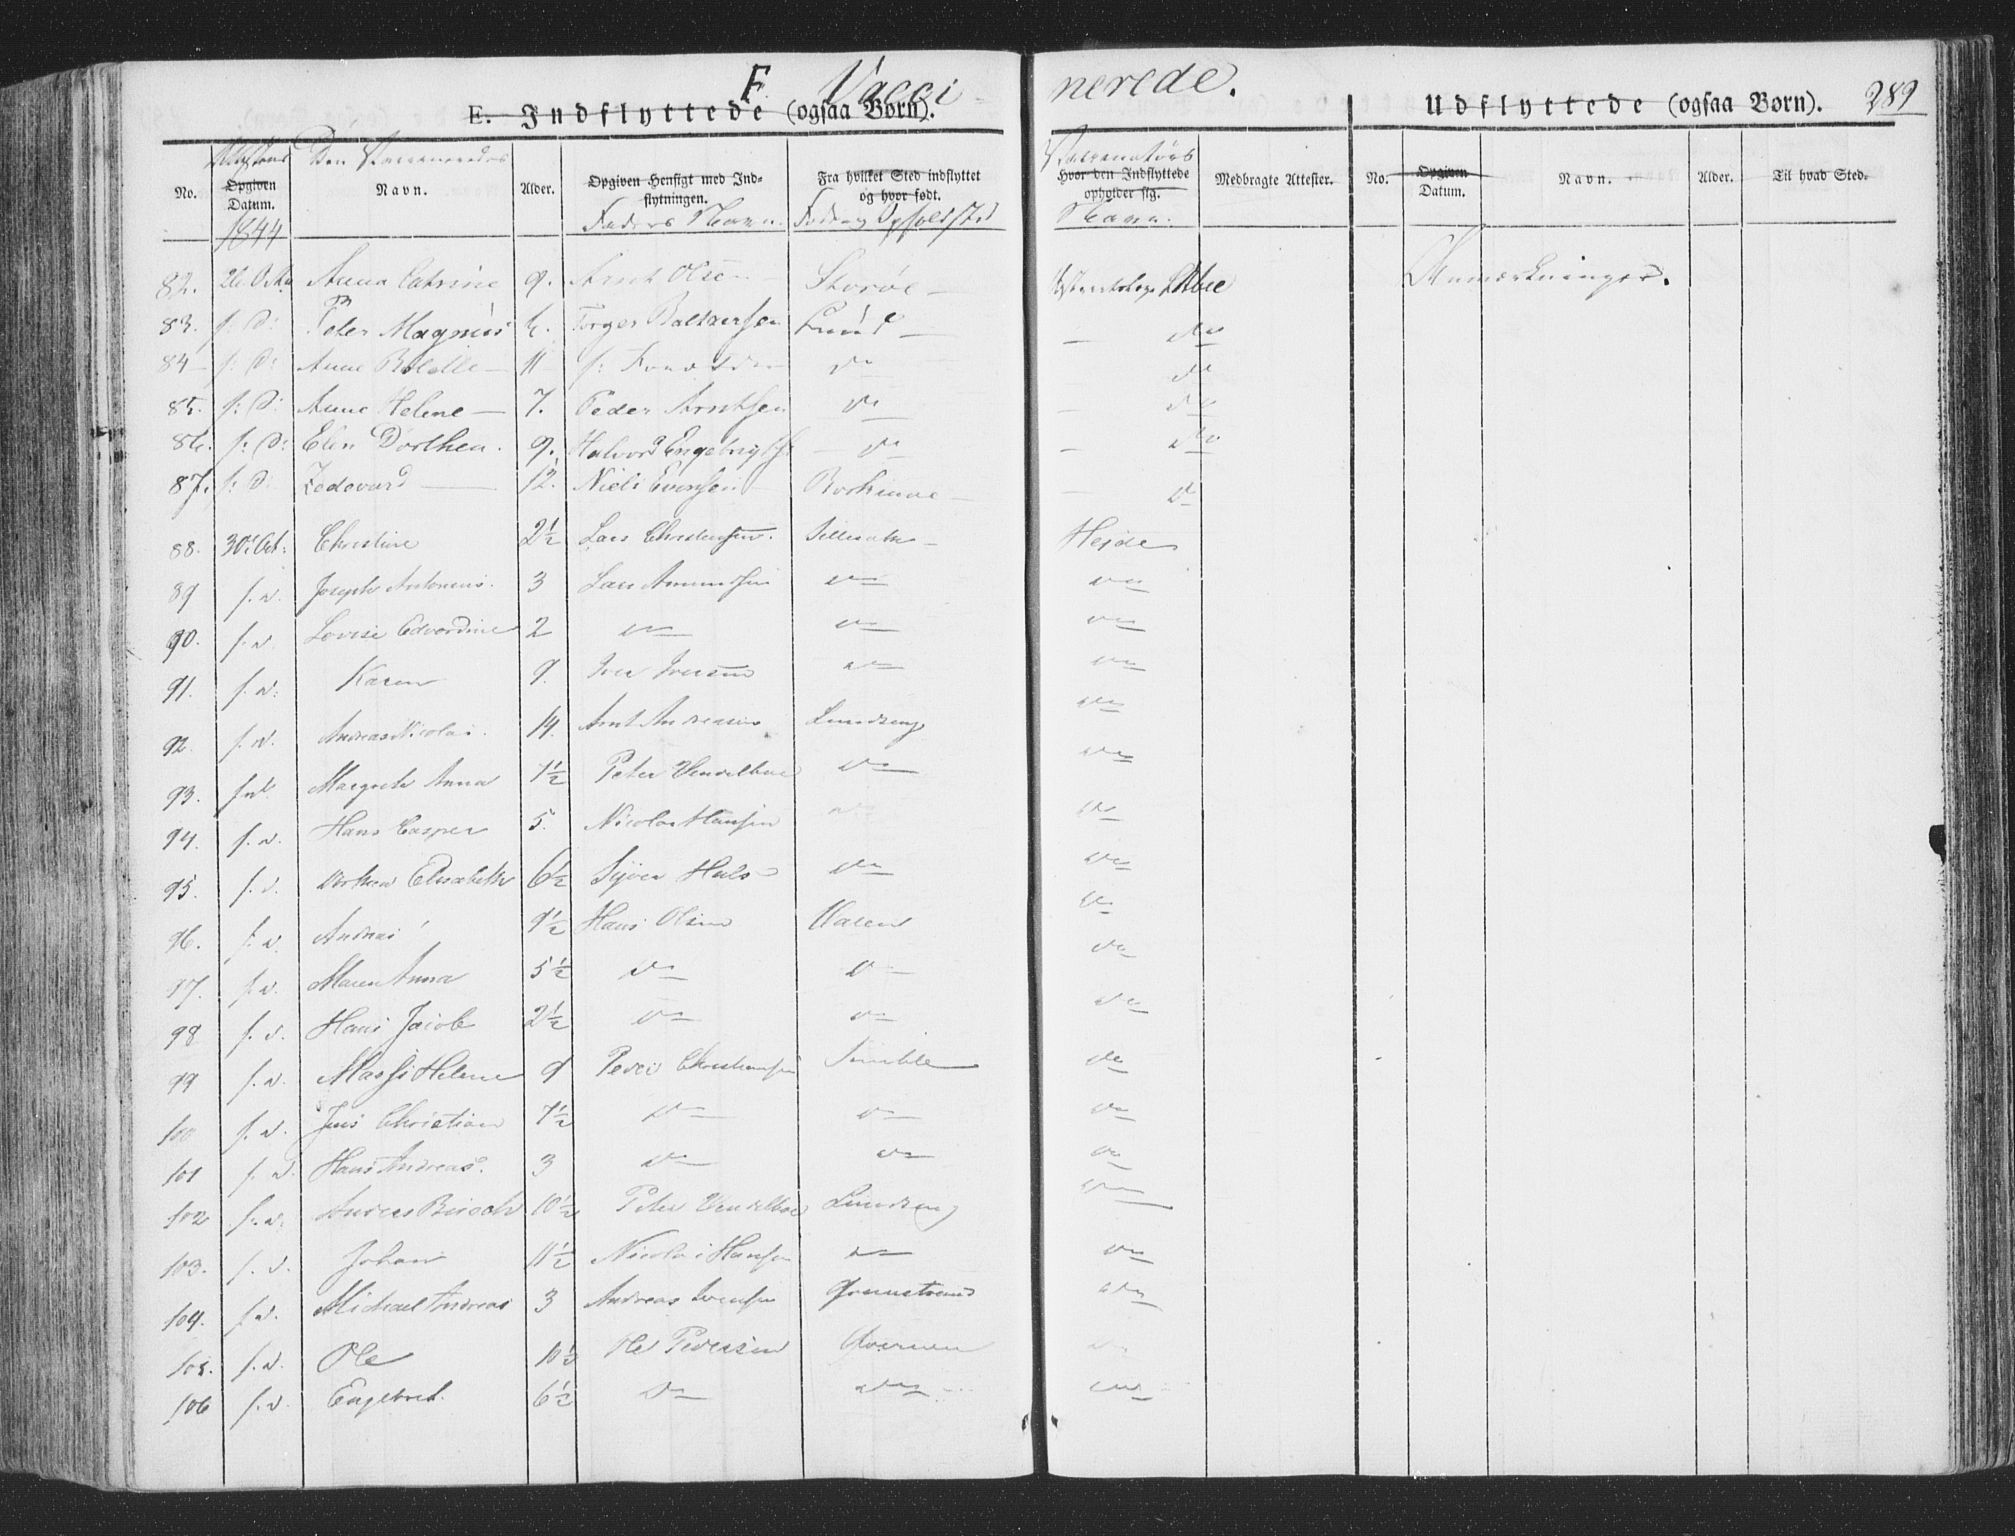 F. Vacci- nerede. 289
E. Indflyttede (ogsaa Børn). Udflyttede (ogsaa Børn).
No. Opgiven Datum. Navn. Alder. Opgiven Hensigt med Indflytningen. Fra hvilket Sted indflyttet og hvor født. Hvor den Indflyttede opholder sig. Medbragte Attester. No. Opgiven Datum. Navn. Alder. Til hvad Sted.
1844 Den Vaccineredes Faders Navn. Opholdsted Vaccinateurs Navn.
82. 26 Octbr Anna Catrine 9. Arnt Olsen Storøe Anmærkninger.
83. f: D: Peter Magnus Torger Lund do
84 f: D: Anne 11 do do
85. f: D: Anne Helene 7. Peder Arntsen do do
86. f: D: Elen Dorthea. 9. Halvord Engebrigts. do do
87. f: D: Zedevard 12. Niels Evensen do
88. 30 Oct: Christine 2½ Lars Christensen. Heide
89 f. d. Joseph Antonius. 3 Lars Amundsen do do
90. f. d. Lovise Edvardine 2 do do do
91. f. d: Karen 9. Iver Iversen do do
92. f. d. Andreas Nicolai. 14. Arnt Andreasen Lundseng do
93. f. d. Margreth Anna 7½ Peter Vendelboe do do
94. f. d. Hans Casper 5. Nicolai Hansen do do
95. f. d. Dorthea Elisabeth 6½ Syver Hals do do
96. f. d. Andreas 9½ Hans Olsen Valen do
97. f. d. Maren Anna 5½ do do do
98 f. d. Hans Jacob 2½ do do do
99 f. d. Massi Helene 9 Peder Christensen do
100 f. d. Jens Christian 7½ do do do
101 f. d. Hans Andreas. 3 do do do
102 f. d. Andreas 10½ Peter Vendelboe Lundseng do
103. f. d. Johan 11½ Nicolai Hansen do do
104. f. d. Michael Andreas 3 Andreas Grønstrand do
105. f. d. Ole 10½ Ole Pedersen do
106 f. d. Engebret. 6½ do do do